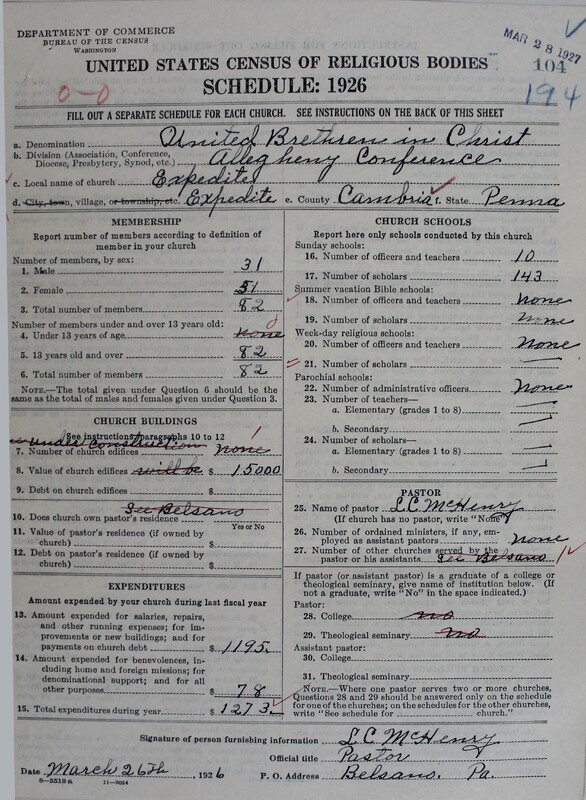 DEPARTMENT OF COMMERCE
BUREAU OF THE CENSUS
WASHINGTON
MAR 28 1927
104
194
UNITED STATES CENSUS OF RELIGIOUS BODIES
SCHEDULE: 1926
0-0
FILL OUT A SEPARATE SCHEDULE FOR EACH CHURCH. SEE INSTRUCTIONS ON THE BACK OF THIS SHEET
a. Denomination United Brethren in Christ
b. Division (Association, Conference, Diocese, Presbytery, Synod, etc.) Allegheny Conference
c. Local name of church Expedite
d. City, town, village, or township, etc. Expedite e. County Cambria f. State Penna
MEMBERSHIP
Report number of members according to definition of member in your church
Number of members, by sex:
1. Male 31
2. Female 51
3. Total number of members 82
Number of members under and over 13 years old:
4. Under 13 years of age none 0
5. 13 years old and over 82
6. Total number of members 82
NOTE.—The total given under Question 6 should be the same as the total of males and females given under Question 3.
CHURCH BUILDINGS
See instructions, paragraphs 10 to 12
under construction
7. Number of church edifices none 1
8. Value of church edifices will be $ 15000
9. Debt on church edifices $
See Belsano
10. Does church own pastor's residence
Yes or No
11. Value of pastor's residence (if owned by church) $
12. Debt on pastor's residence (if owned by church) $
EXPENDITURES
Amount expended by your church during last fiscal year
13. Amount expended for salaries, repairs, and other running expenses; for improvements or new buildings; and for payments on church debt $ 1195.
14. Amount expended for benevolences, including home and foreign missions; for denominational support; and for all other purposes $ 78
15. Total expenditures during year $ 1273.
CHURCH SCHOOLS
Report here only schools conducted by this church
Sunday schools:
16. Number of officers and teachers 10
17. Number of scholars 143
Summer vacation Bible schools:
18. Number of officers and teachers none
19. Number of scholars none
Week-day religious schools:
20. Number of officers and teachers none
21. Number of scholars
Parochial schools:
22. Number of administrative officers none
23. Number of teachers—
a. Elementary (grades 1 to 8)
b. Secondary
24. Number of scholars—
a. Elementary (grades 1 to 8)
b. Secondary
PASTOR
25. Name of pastor L.C. McHenry
(If church has no pastor, write "None")
26. Number of ordained ministers, if any, employed as assistant pastors none
27. Number of other churches served by the pastor or his assistants See Belsano 1
If pastor (or assistant pastor) is a graduate of a college or theological seminary, give name of institution below. (If not a graduate, write "No" in the space indicated.)
Pastor:
28. College no
29. Theological seminary no
Assistant pastor:
30. College
31. Theological seminary
NOTE.—Where one pastor serves two or more churches, Questions 28 and 29 should be answered only on the schedule for one of the churches; on the schedules for the other churches, write "See schedule for church."
Signature of person furnishing information L.C. McHenry
Official title Pastor
Date March 26th, 1926 P. O. Address Belsano. Pa.
8-5518a 11-9664